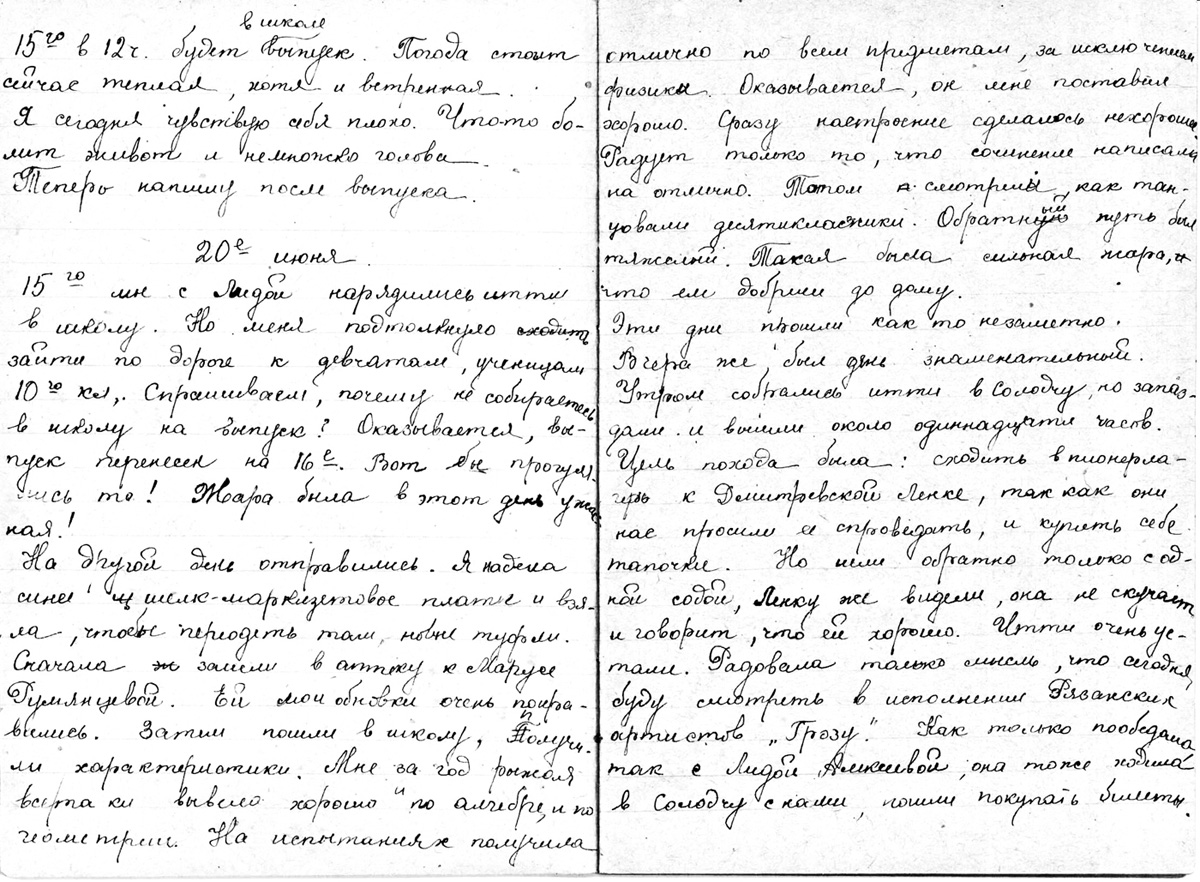 в школе
15го в 12ч. будет выпуск. Погода стоит
сейчас теплая, хотя и ветренная.
Я сегодня чувствую себя плохо. Что-то бо-
лит живот и немножко голова.
Теперь напишу после выпуска.
20е июня.
15го мы с Лидой нарядились итти
в школу. Но меня подтолкнуло сходить
зайти по дороге к девчатам, ученицам
10го кл,. Спрашиваем, почему не собираетесь
в школу на выпуск? Оказывается, вы-
пуск перенесен на 16е. Вот бы прогуля-
лись то! Жара была в этот день ужас-
ная!
На другой день отправились. Я надела
синее шелк-маркизетовое платье и взя-
ла, чтобы переодеть там, новые туфли.
Сначала зашли в аптеку к Марусе
Румянцевой. Ей мои обновки очень понра-
вились. Затем пошли в школу, Получи-
ли характеристики. Мне за год рыжая
всетаки вывела хорошо и по алгебре, и по
геометрии. На испытаниях получила
отлично по всем предметам, за исключением
физики. Оказывается, он мне поставил
хорошо. Сразу настроение сделалось нехорошее.
Радует только то, что сочинение написала
на отлично. Потом смотрели, как тан-
цовали десятиклассники. Обратный путь был
тяжелый. Такая была сильная жара,
что ели добрили до дому.
Эти дни прошли как то незаметно.
Вчера же, был день знаменательный.
Утром собрались итти в Солодчу, но запаз-
дали и вышли около одиннадцати часов.
Цель похода была: сходить в пионерла-
герь к Дмитревской Ленке, так как они
нас просили ее спроведать, и купить себе
тапочки. Но шли обратно только с од-
ной содой, Ленку же видели, она не скучает
и говорит, что ей хорошо. Итти очень ус-
тали. Радовала только мысль, что сегодня,
буду смотреть в исполнении Рязанских
артистов „Грозу“. Как только пообедала
так с Лидой Алексеевой, она тоже ходила
в Солодчу с нами, пошли покупать билеты.